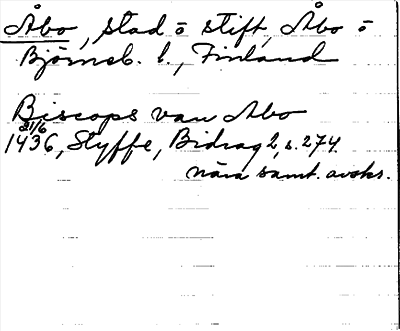 Åbo, stad o stift, Åbo o
Björneb. l., Finland
Biscops van Abo
21/6
1436, Styffe, Bidrag 2, s. 274.
nära samt. avskr.